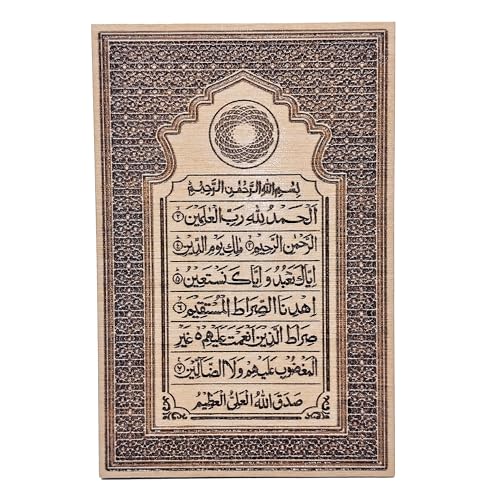 بسم الله الرحمن الرحيم
الحمد لله رب العلمين ٢
الرحمن الرحيم ٣ ملك يوم الدين ٤
اياك نعبد و اياك نستعين ٥
اهدنا الصراط المستقيم ٦
صراط الذين انعمت عليهم ٥ غير
المغضوب عليهم ولا الضالين ٧
صدق الله العلي العظيم